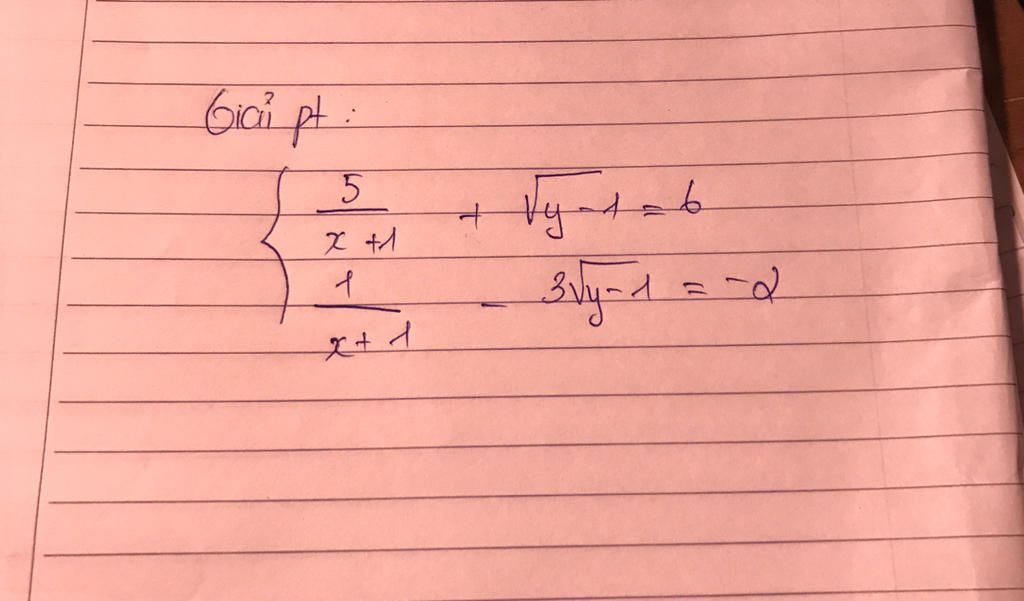 Giải pt :
5/(x+1) + √(y-1) = 6
1/(x+1) - 3√(y-1) = -2